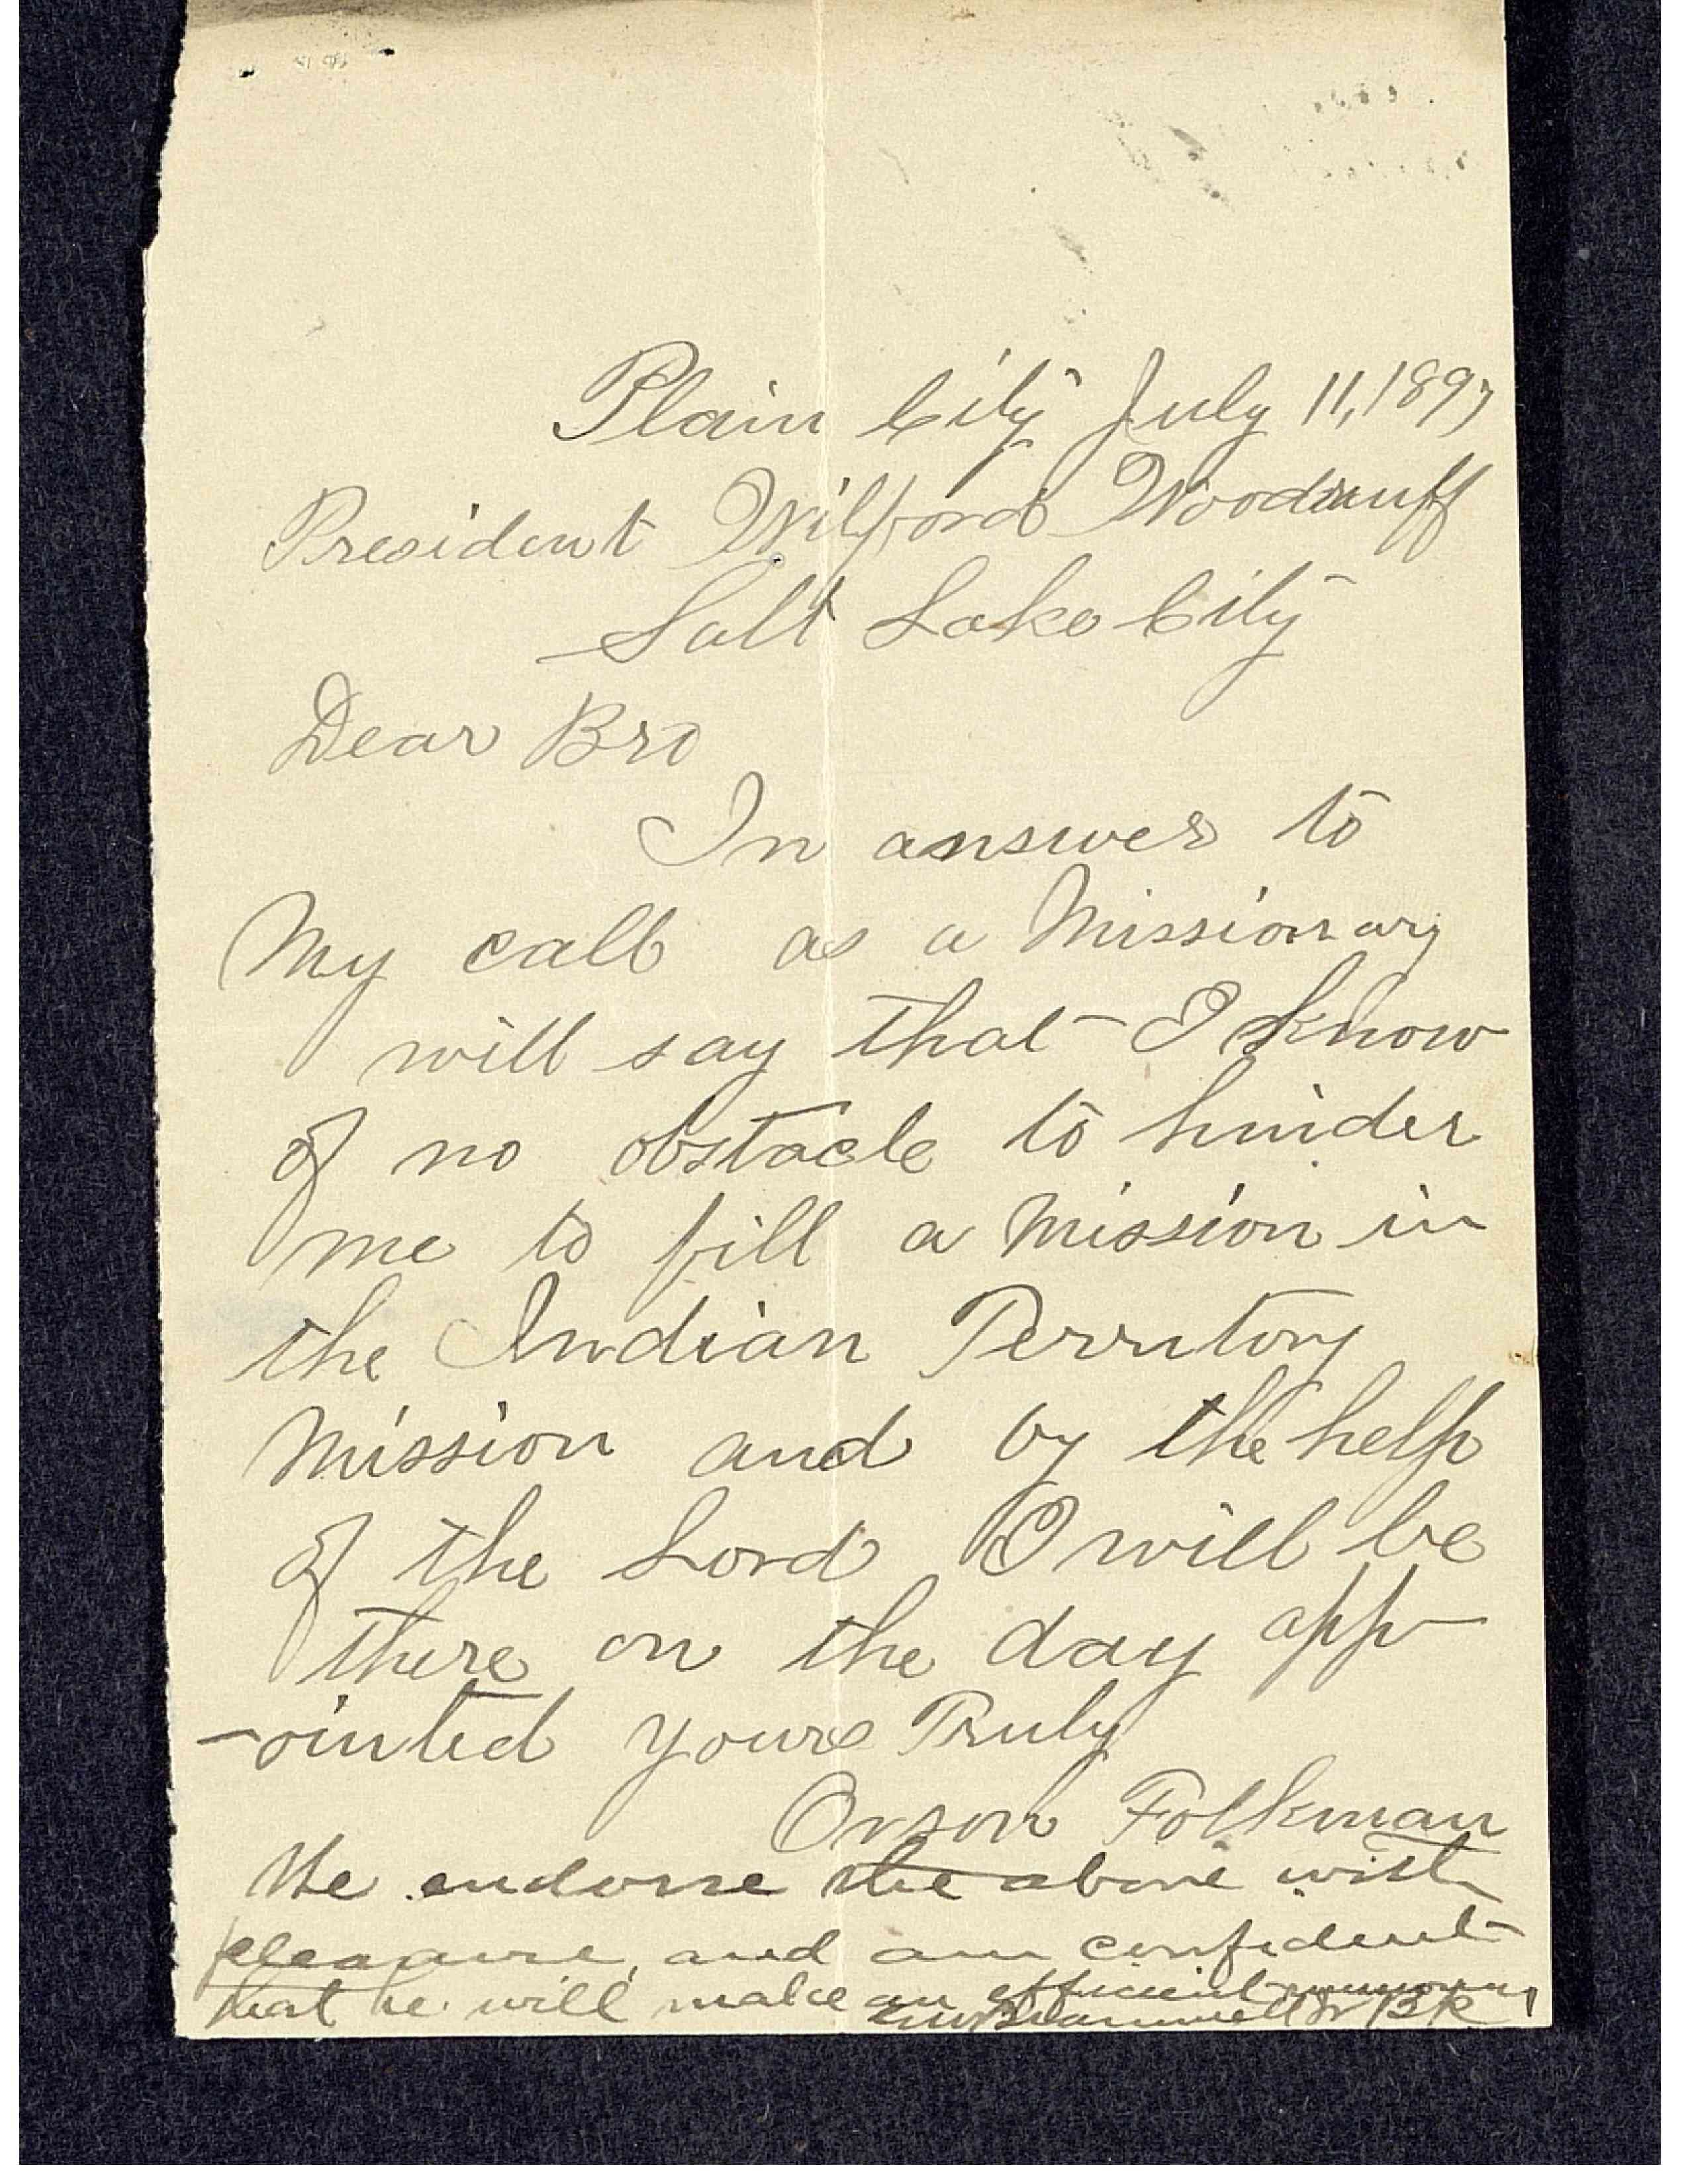 Plain City July 11, 1897
President Wilford Woodruff
Salt Lake City
Dear Bro
In answer to
My call as a Missionary
will say that I know
of no obstacle to hinder
me to fill a Mission in
the Indian Territory
Mission and by the help
of the Lord I will be
there on the day app-
-ointed Yours Truly
Orson Folkman
We endorse the above with
pleasure, and am confident
that he will make an efficient missionary
Bramwell Jr